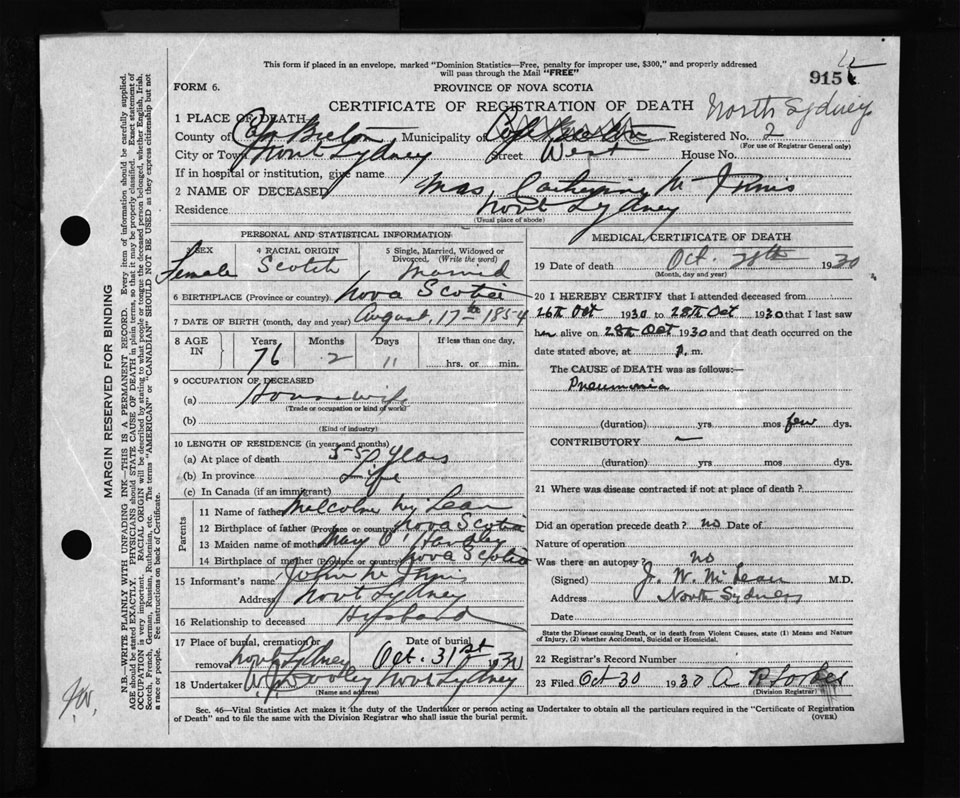 This form if placed in an envelope, marked "Dominion Statistics—Free, penalty for improper use, $300," and properly addressed
will pass through the Mail "FREE"
915
FORM 6.
PROVINCE OF NOVA SCOTIA
CERTIFICATE OF REGISTRATION OF DEATH
North Sydney
1 PLACE OF DEATH
County of Cape Breton Municipality of Cape Breton Registered No. 2
(For use of Registrar General only)
City or Town North Sydney Street West House No.
If in hospital or institution, give name
2 NAME OF DECEASED Mrs. Catherine Mc Innis
Residence North Sydney
(Usual place of abode)
PERSONAL AND STATISTICAL INFORMATION
3 SEX 4 RACIAL ORIGIN 5 Single, Married, Widowed or
Divorced, (Write the word)
Female Scotch Married
6 BIRTHPLACE (Province or country) Nova Scotia
7 DATE OF BIRTH (month, day and year) August 17th 1854
8 AGE IN Years Months Days If less than one day,
76 2 11 hrs. or min.
9 OCCUPATION OF DECEASED
(a) Housewife
(Trade or occupation or kind of work)
(b)
(Kind of industry)
10 LENGTH OF RESIDENCE (in years and months)
(a) At place of death years
(b) In province Life
(c) In Canada (if an immigrant)
Parents
11 Name of father Mc Lean
12 Birthplace of father (Province or country) Nova Scotia
13 Maiden name of mother Mary
14 Birthplace of mother (Province or country) Nova Scotia
15 Informant's name John Mc Innis
Address North Sydney
16 Relationship to deceased Husband
17 Place of burial, cremation or Date of burial
removal North Sydney Oct. 31st 1930
18 Undertaker North Sydney
(Name and address)
MEDICAL CERTIFICATE OF DEATH
19 Date of death Oct. 28th 1930
(Month, day and year)
20 I HEREBY CERTIFY that I attended deceased from
26th Oct 1930 to 28th Oct 1930 that I last saw
her alive on 28th Oct 1930 and that death occurred on
date stated above, at m.
The CAUSE of DEATH was as follows:—
Pneumonia
(duration) yrs mos few dys.
CONTRIBUTORY —
(duration) yrs mos dys.
21 Where was disease contracted if not at place of death?
Did an operation precede death? no Date of
Nature of operation
Was there an autopsy? no
(Signed) J. W. McLean M.D.
Address North Sydney
Date
State the Disease causing Death, or in death from Violent Causes, state (1) Means and Nature
of Injury, (2) whether Accidental, Suicidal or Homicidal.
22 Registrar's Record Number
23 Filed Oct 30 1930 A
(Division Registrar)
Sec. 46—Vital Statistics Act makes it the duty of the Undertaker or person acting as Undertaker to obtain all the particulars required in the "Certificate of Registration
of Death" and to file the same with the Division Registrar who shall issue the burial permit.
(OVER)
MARGIN RESERVED FOR BINDING
N.B.—WRITE PLAINLY WITH UNFADING INK—THIS IS A PERMANENT RECORD. Every item of information should be carefully supplied.
AGE should be stated EXACTLY. PHYSICIANS should STATE CAUSE OF DEATH in plain terms, so that it may be properly classified. Exact statement of
OCCUPATION is very important. RACIAL ORIGIN will be described by stating to what people or tongue the deceased person belonged, whether English, Irish,
Scotch, French, German, Russian, Ruthenian, etc. The terms "AMERICAN" or "CANADIAN" SHOULD NOT BE USED as they express citizenship but not
a race or people. See instructions on back of Certificate.